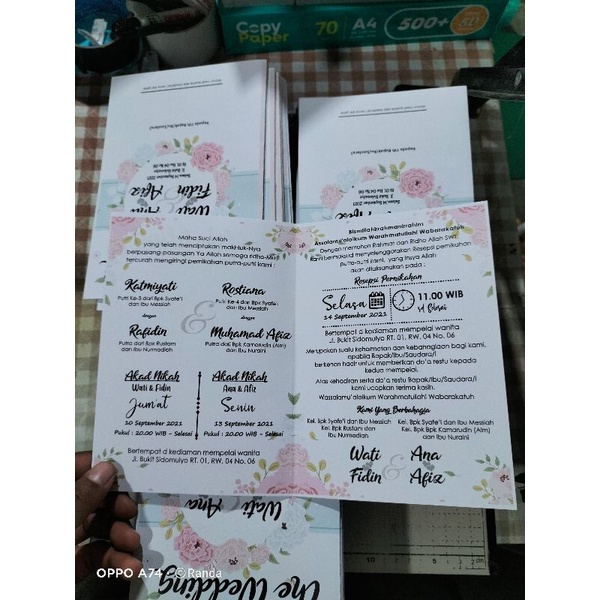 Copy
Paper
70
A4
500+
Maha Suci Allah
yang telah menciptakan makhluk-Nya
berpasang-pasangan Ya Allah semoga ridha-Mu
tercurah mengiringi pernikahan putra-putri kami
Katmiyati
Putri Ke-3 dari Bpk Syafe'i
dan Ibu Messiah
dengan
Rafidin
Putra dari Bpk Rustam
dan Ibu Nurmadiah
&
Rostiana
Putri Ke-4 dari Bpk Syafe'i
dan Ibu Messiah
dengan
Muhamad Afiz
Putra dari Bpk Kamarudin (Alm)
dan Ibu Nuraini
Akad Nikah
Wati & Fidin
Jum'at
10 September 2021
Pukul : 20.00 WIB - Selesai
Akad Nikah
Ana & Afiz
Senin
13 September 2021
Pukul : 20.00 WIB - Selesai
Bertempat di kediaman mempelai wanita
Jl. Bukit Sidomulyo RT. 01, RW. 04 No. 06
Bismillahirrahmanirrahim
Assalamu'alaikum Warahmatullahi Wabarakatuh
Dengan memohon Rahmat dan Ridho Allah Swt
Kami bermaksud menyelenggarakan Resepsi pernikahan
putra-putri kami, yang Insya Allah
akan dilaksanakan pada :
Resepsi Pernikahan
Selasa
14 September 2021
11.00 WIB
s/d Selesai
Bertempat di kediaman mempelai wanita
Jl. Bukit Sidomulyo RT. 01, RW. 04 No. 06
Merupakan suatu kehormatan dan kebahagiaan bagi kami,
apabila Bapak/Ibu/Saudara/i
berkenan hadir untuk memberikan do'a restu kepada
kedua mempelai.
Atas kehadiran serta do'a restu Bapak/Ibu/Saudara/i
kami ucapkan terima kasih.
Wassalamu'alaikum Warahmatullahi Wabarakatuh
Kami Yang Berbahagia
Kel. Bpk Syafe'i dan Ibu Messiah
Kel. Bpk Rustam dan
Ibu Nurmadiah
Kel. Bpk Syafe'i dan Ibu Messiah
Kel. Bpk Kamarudin (Alm)
dan Ibu Nuraini
Wati
Fidin
&
Ana
Afiz
Wati
Ana
The Wedding
OPPO A74 Randa